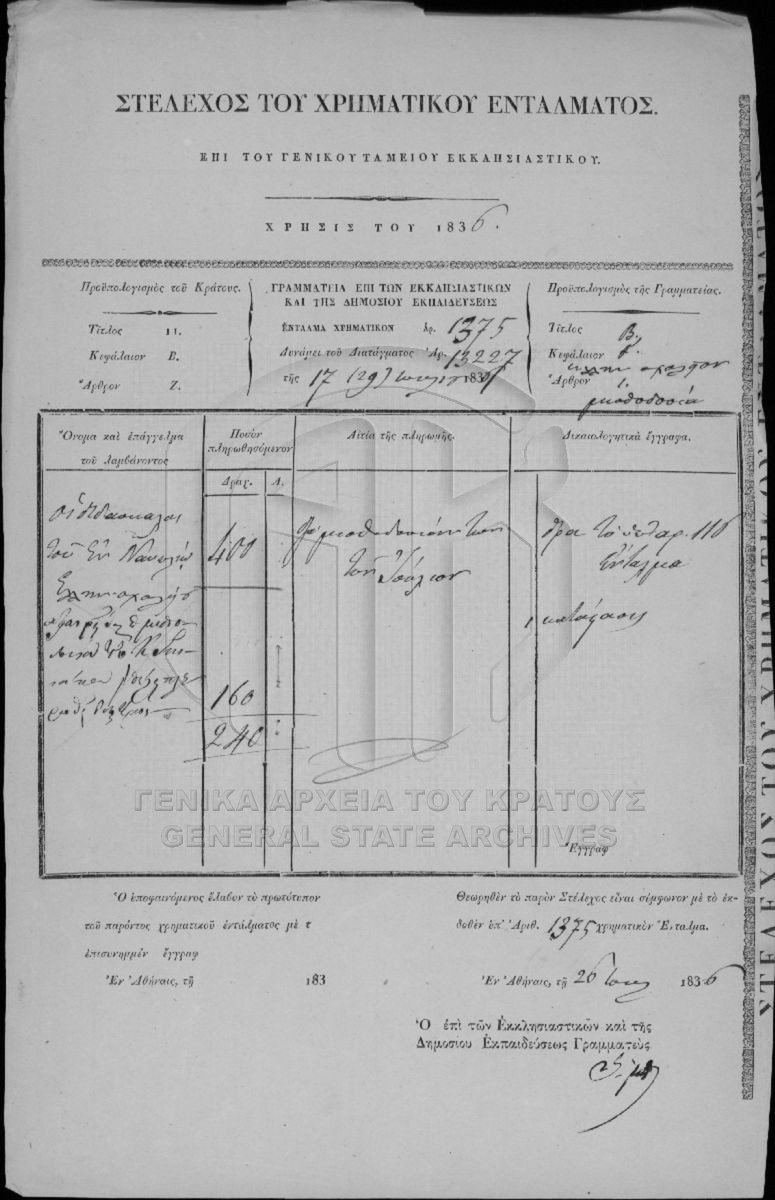 ΣΤΕΛΕΧΟΣ ΤΟΥ ΧΡΗΜΑΤΙΚΟΥ ΕΝΤΑΛΜΑΤΟΣ.
ΕΠΙ ΤΟΥ ΓΕΝΙΚΟΥ ΤΑΜΕΙΟΥ ΕΚΚΛΗΣΙΑΣΤΙΚΟΥ.
ΧΡΗΣΙΣ ΤΟΥ 1836.
Προϋπολογισμὸς τοῦ Κράτους.
Τίτλος Π.
Κεφάλαιον Ε.
Ἄρθρον Ζ.
ΓΡΑΜΜΑΤΕΙΑ ΕΠΙ ΤΩΝ ΕΚΚΛΗΣΙΑΣΤΙΚΩΝ
ΚΑΙ ΤΗΣ ΔΗΜΟΣΙΟΥ ΕΚΠΑΙΔΕΥΣΕΩΣ
ΕΝΤΑΛΜΑ ΧΡΗΜΑΤΙΚΟΝ Ἀρ. 1375
Δυνάμει τοῦ Διατάγματος Ἀρ. 13227
τῆς 17 (29) 183
Προϋπολογισμὸς τῆς Γραμματείας.
Τίτλος Β.
Κεφάλαιον
Ἄρθρον 1.
μισθοδοσία
Ὄνομα καὶ ἐπάγγελμα
τοῦ λαμβάνοντος
Ποσὸν
πληρωθησόμενον
Δραχ. Λ.
Αἰτία τῆς πληρωμῆς.
Δικαιολογητικὰ ἔγγραφα.
τοῦ ἐν Ναυπλίῳ
400
μισθοδοσίαν των
τὸν Ἰούλιον
ὅρα τὸ ὑπ' ἀρ. 116
Ἐνταλμα
1 κατάστασις
160
240
ΓΕΝΙΚΑ ΑΡΧΕΙΑ ΤΟΥ ΚΡΑΤΟΥΣ
GENERAL STATE ARCHIVES
Ἔγγραφ
Ὁ ὑποφαινόμενος ἔλαβον τὸ πρωτότυπον
τοῦ παρόντος χρηματικοῦ ἐντάλματος μὲ τ
ἐπισυνημμέν ἔγγραφ
Ἐν Ἀθήναις, τῇ 183
Θεωρηθὲν τὸ παρὸν Στέλεχος εἶναι σύμφωνον μὲ τὸ ἐκ-
δοθὲν ὑπ' Ἀριθ. 1375 χρηματικὸν Ἔνταλμα.
Ἐν Ἀθήναις, τῇ 26 1836
Ὁ ἐπὶ τῶν Ἐκκλησιαστικῶν καὶ τῆς
Δημοσίου Ἐκπαιδεύσεως Γραμματεὺς
ΣΤΕΛΕΧΟΣ ΤΟΥ ΧΡΗΜΑΤΙΚΟΥ ΕΝΤΑΛΜΑΤΟΣ